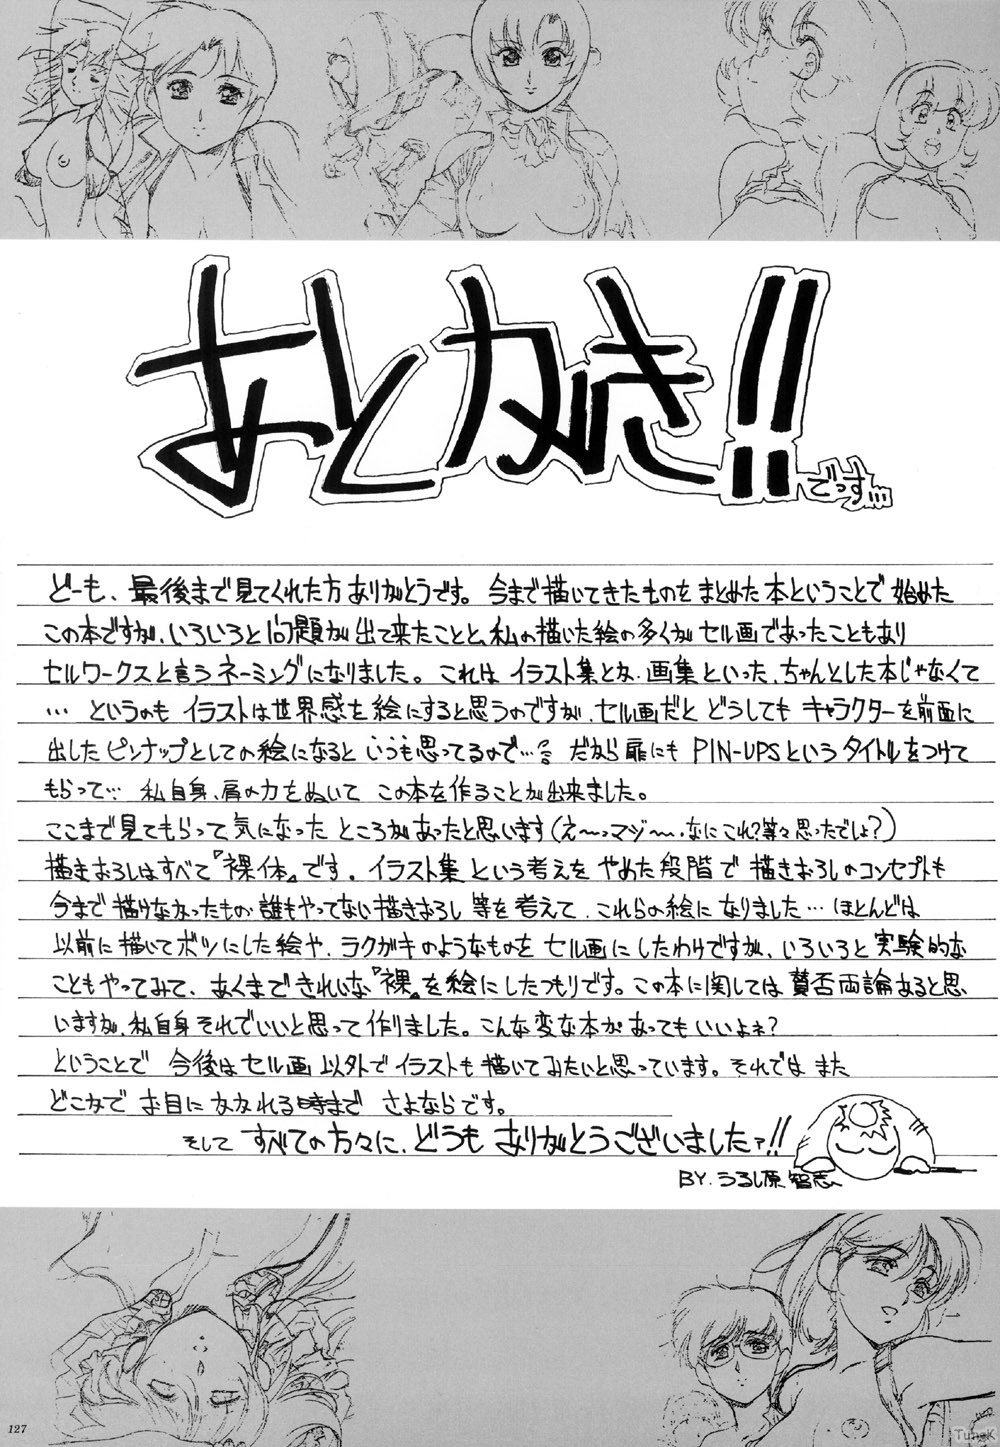 あとがき!!
でっす
どーも、最後まで見てくれた方ありがとうです。今まで描いてきたものをまとめた本ということで始めた
この本ですが、いろいろと問題が出て来たことと、私の描いた絵の多くがセル画であったこともあり
セルワークスと言うネーミングになりました。これはイラスト集とか、画集といった、ちゃんとした本じゃなくて
…というのもイラストは世界感を絵にすると思うのですが、セル画だとどうしてもキャラクターを前面に
出したピンナップとしての絵になるといつも思ってるので…。だから扉にもPIN-UPSというタイトルをつけて
もらって…私自身、肩の力をぬいてこの本を作ることが出来ました。
ここまで見てもらって気になったところがあったと思います(え〜っマジ〜、なにこれ?等々思ったでしょ?)
描きおろしはすべて『裸体』です。イラスト集という考えをやめた段階で描きおろしのコンセプトも
今まで描けなかったもの、誰もやってない描きおろし等を考えて、これらの絵になりました…ほとんどは
以前に描いてボツにした絵や、ラクガキのようなものをセル画にしたわけですが、いろいろと実験的な
こともやってみて、あくまできれいな『裸』を絵にしたつもりです。この本に関しては賛否両論あると思
いますが、私自身それでいいと思って作りました。こんな変な本があってもいいよネ?
ということで今後はセル画以外でイラストも描いてみたいと思っています。それではまた
どこかでお目にかかれる時までさよならです。
そしてすべての方々に、どうもありがとうございましたァ!!
BY.うるし原智志
127
TuneK